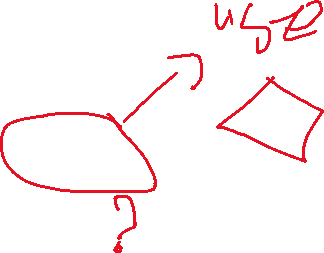 use
?